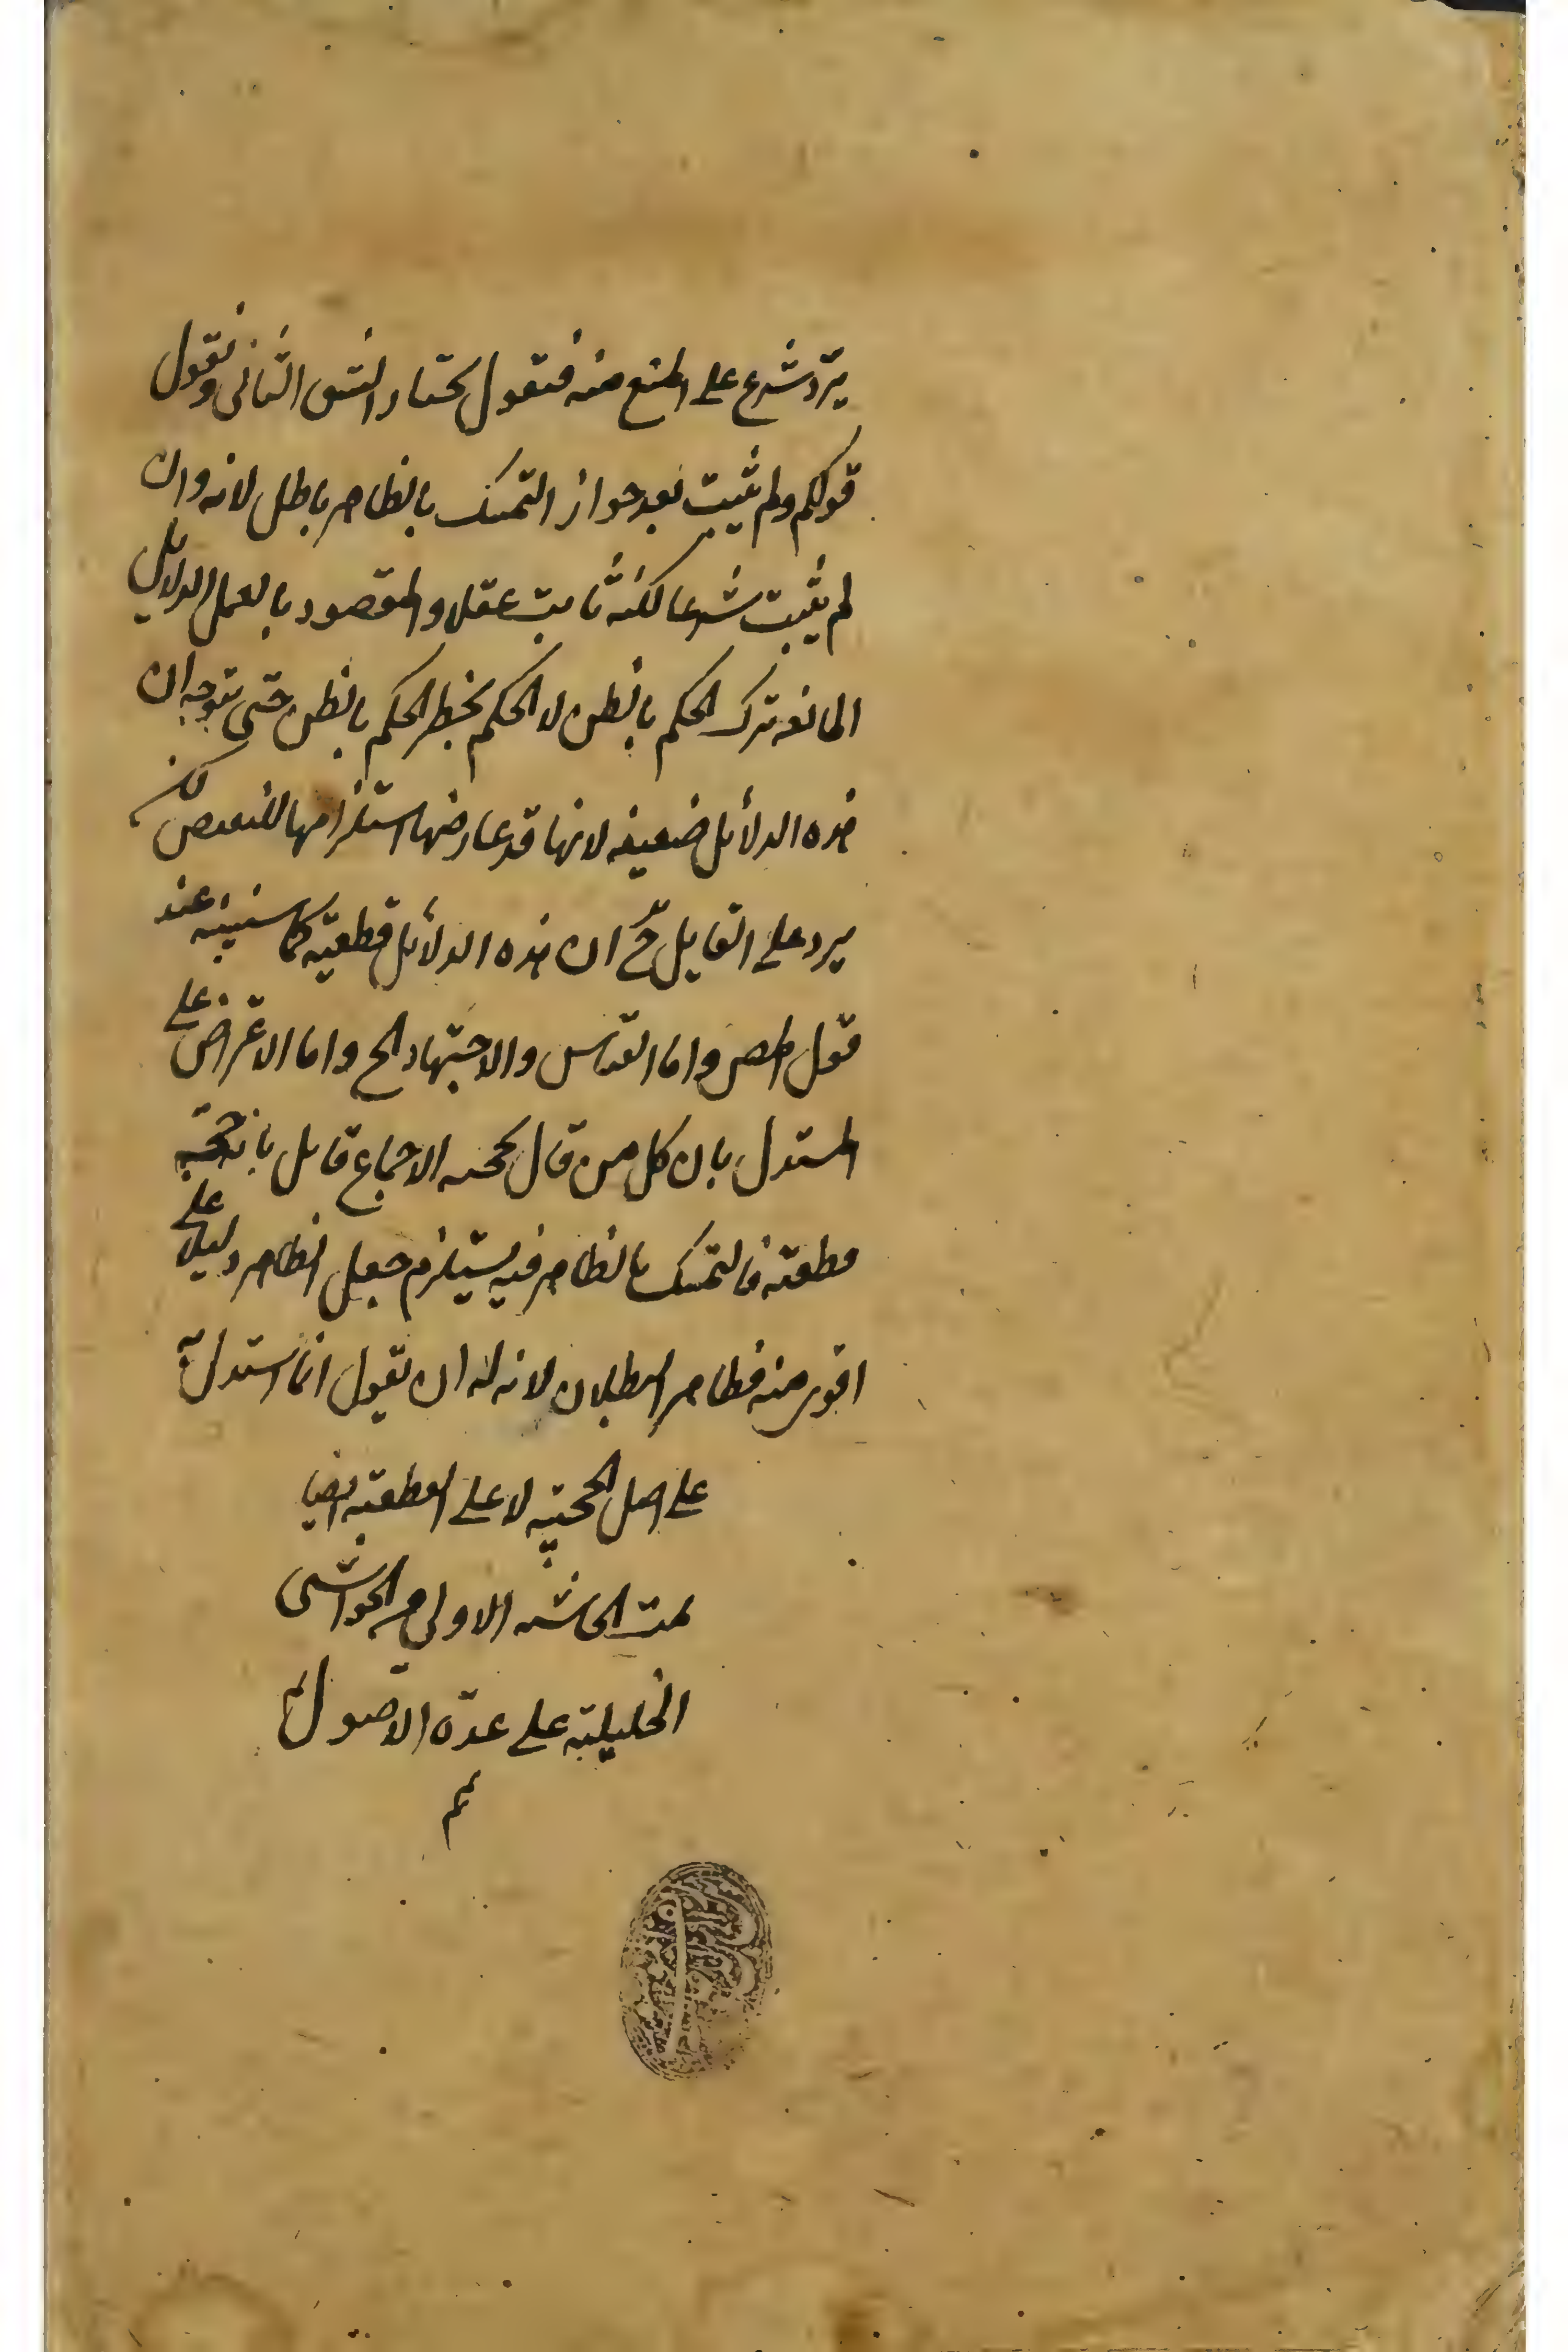 يرد شرع على المنع منه فنقول نختار الشق الثانى ونقول
قولكم ولم يثبت بعد جواز التمسك بالظاهر باطل لانه وان
لم يثبت شرعا لكنه ثابت عقلا والمقصود بالعمل بالدلايل
المانعه ترك الحكم بالظن لا الحكم بخطر الحكم بالظن حتى يتوجه ان
هذه الدلائل ضعيفه لانها قد عارضها استلزامها للنقيض لكن
يرد على القايل ح ان هذه الدلائل قطعية كما سنبينه عند
قول المص واما القياس والاجتهاد الخ واما الاعتراض على
المستدل بان كل من قال بحجية الاجماع قايل بان حجيته
قطعية فالتمسك بالظاهر فيه يستلزم جعل الظاهر دليلا على
اقوى منه فظاهر البطلان لانه له ان يقول انا استدل به
على اصل الحجية لا على القطعية ايضا
تمت الحاشية الاولى من الحواشى
الخليلية على عدة الاصول
تم